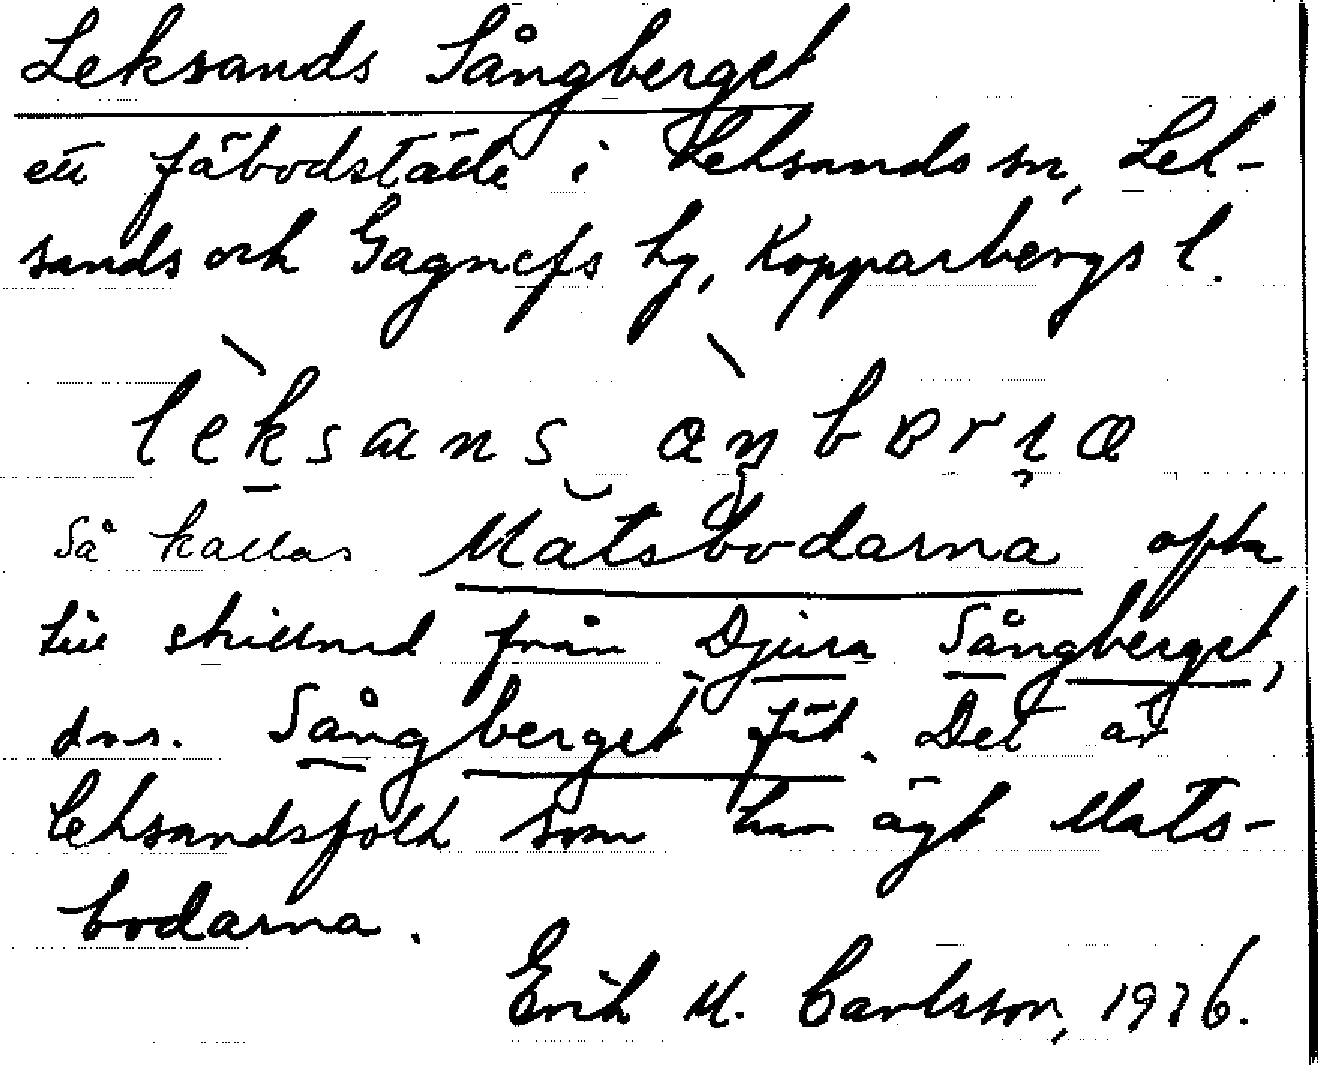 Leksands Sångberget
ett fäbodställe i Leksands sn, Lek-
sands och Gagnefs hg, Kopparbergs l.
Så kallas Matsbodarna ofta
till skillnad från Djura Sångberget,
dvs. Sångberget fäb. Det är
leksandsfolk som har ägt Mats-
bodarna.
Erik M. Carlsson, 1976.